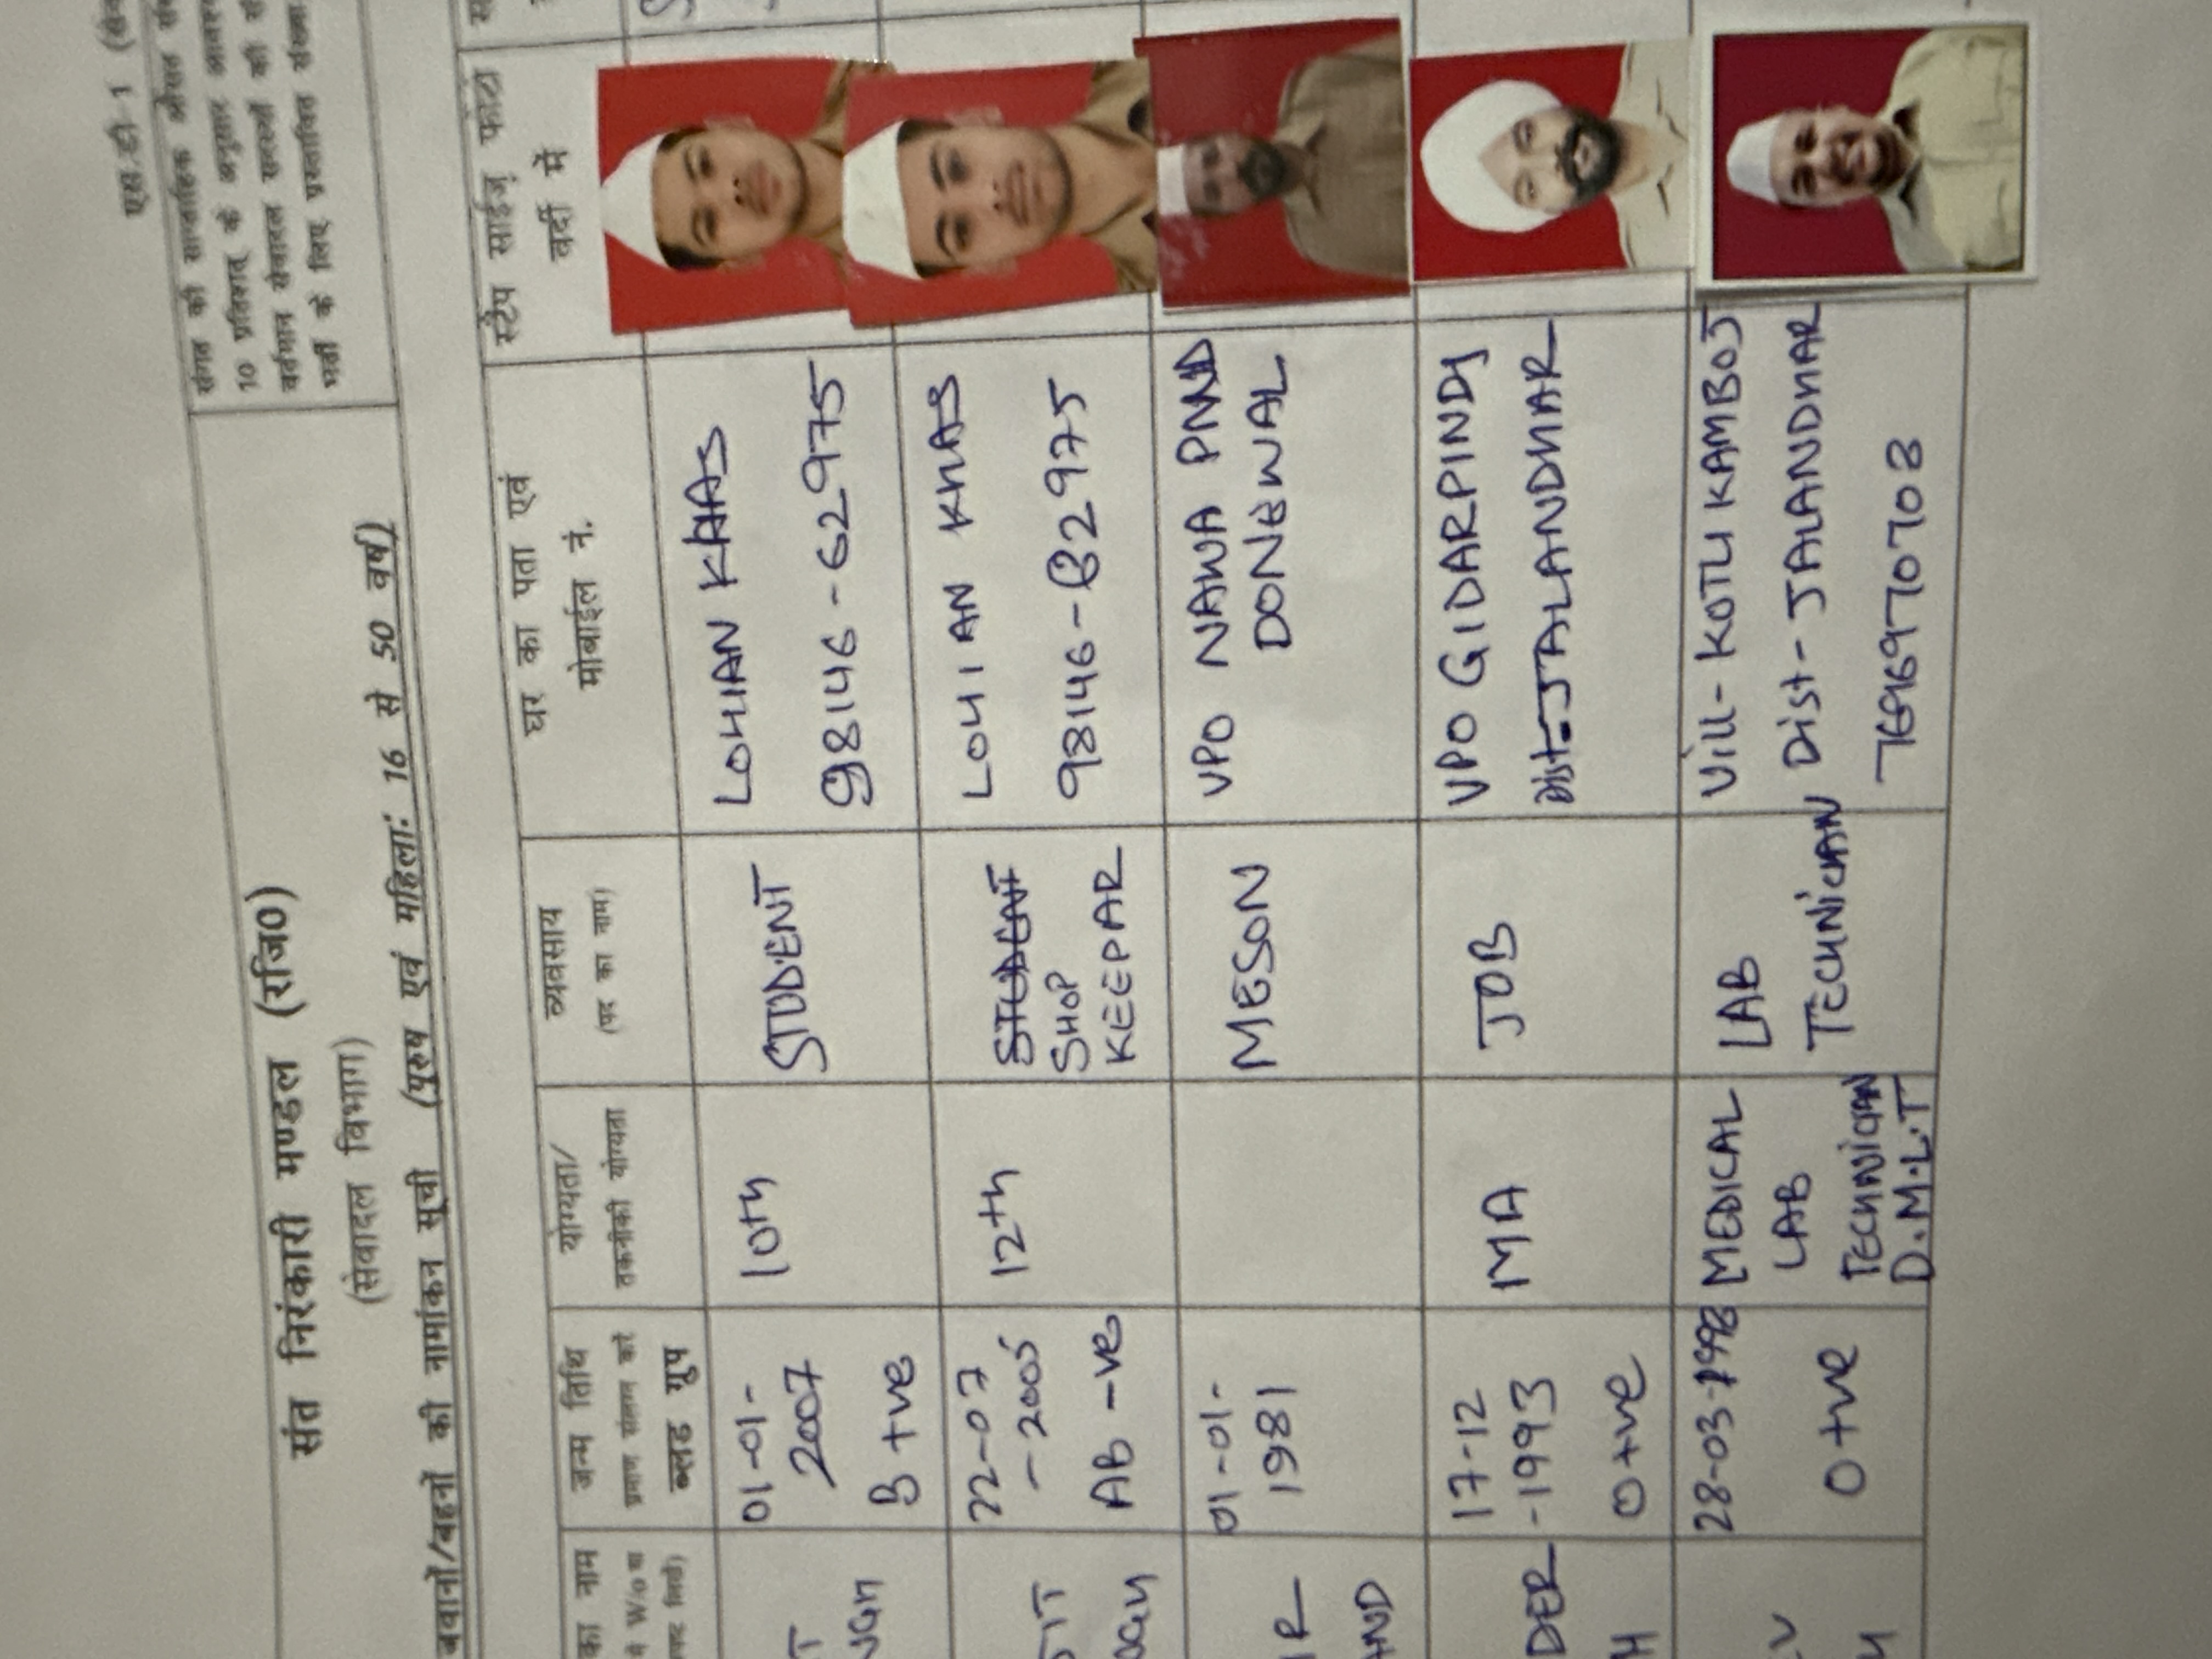 एस.डी-1
संत निरंकारी मण्डल (रजि०)
(सेवादल विभाग)
जवानों/बहनों की नामांकन सूची (पुरुष एवं महिला: 16 से 50 वर्ष)
संगत की साप्ताहिक औसत
10 प्रतिशत के अनुसार
वर्तमान सेवादल सदस्यों की
भर्ती के लिए प्रस्तावित संख्या
का नाम
W/o
जन्म तिथि
ब्लड ग्रुप
योग्यता/
तकनीकी योग्यता
व्यवसाय
(पद का नाम)
घर का पता एवं
मोबाईल नं.
स्टैंप साईज़ फोटो
वर्दी में
01-01-
2007
B +ve
10th
STUDENT
LOHIAN KHAS
98146-62975
22-07
-2005
AB -ve
12th
SHOP
KEEPAR
LOHIAN KHAS
98146-62975
01-01-
1981
MESON
VPO NAWA PIND
DONEWAL
DER
17-12
-1993
O+ve
MA
JOB
VPO GIDARPINDI
Dist=JALANDHAR
28-03-1998
O+ve
MEDICAL
LAB
TECHNICIAN
D.M.L.T
LAB
TECHNICIAN
Vill- KOTLI KAMBOJ
Dist- JALANDHAR
7696970708